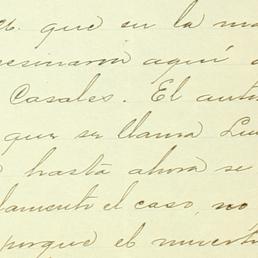 26. que en la ma
esinaron aquí a
Casales. El auto
que se llama Lui
hasta ahora se
lamente el caso, no
porque el muerto